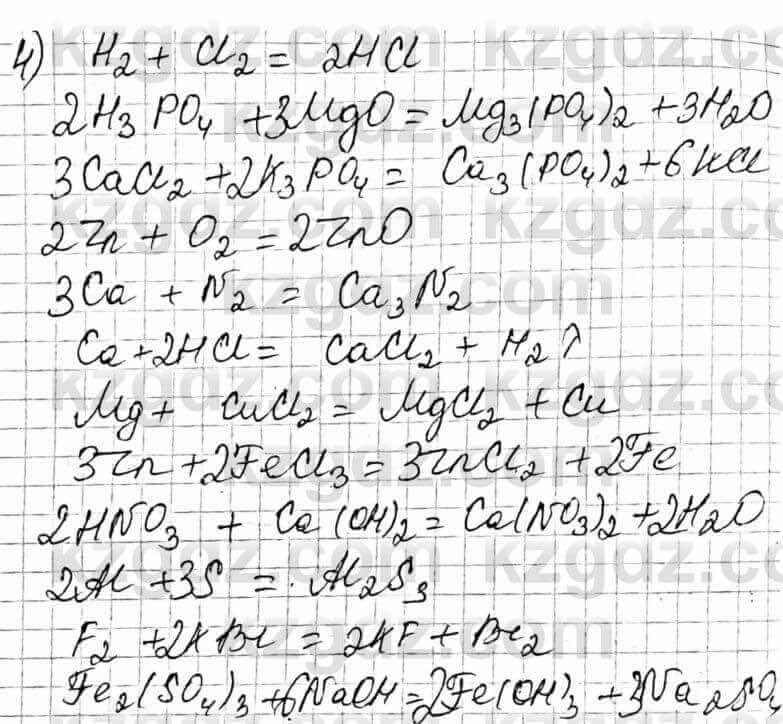 4) H₂ + Cl₂ = 2HCl
2H₃PO₄ + 3MgO = Mg₃(PO₄)₂ + 3H₂O
3CaCl₂ + 2K₃PO₄ = Ca₃(PO₄)₂ + 6KCl
2Zn + O₂ = 2ZnO
3Ca + N₂ = Ca₃N₂
Ca + 2HCl = CaCl₂ + H₂↑
Mg + CuCl₂ = MgCl₂ + Cu
3Zn + 2FeCl₃ = 3ZnCl₂ + 2Fe
2HNO₃ + Ca(OH)₂ = Ca(NO₃)₂ + 2H₂O
2Al + 3S = Al₂S₃
F₂ + 2KBr = 2KF + Br₂
Fe₂(SO₄)₃ + 6NaOH = 2Fe(OH)₃ + 3Na₂SO₄
kzgdz.com